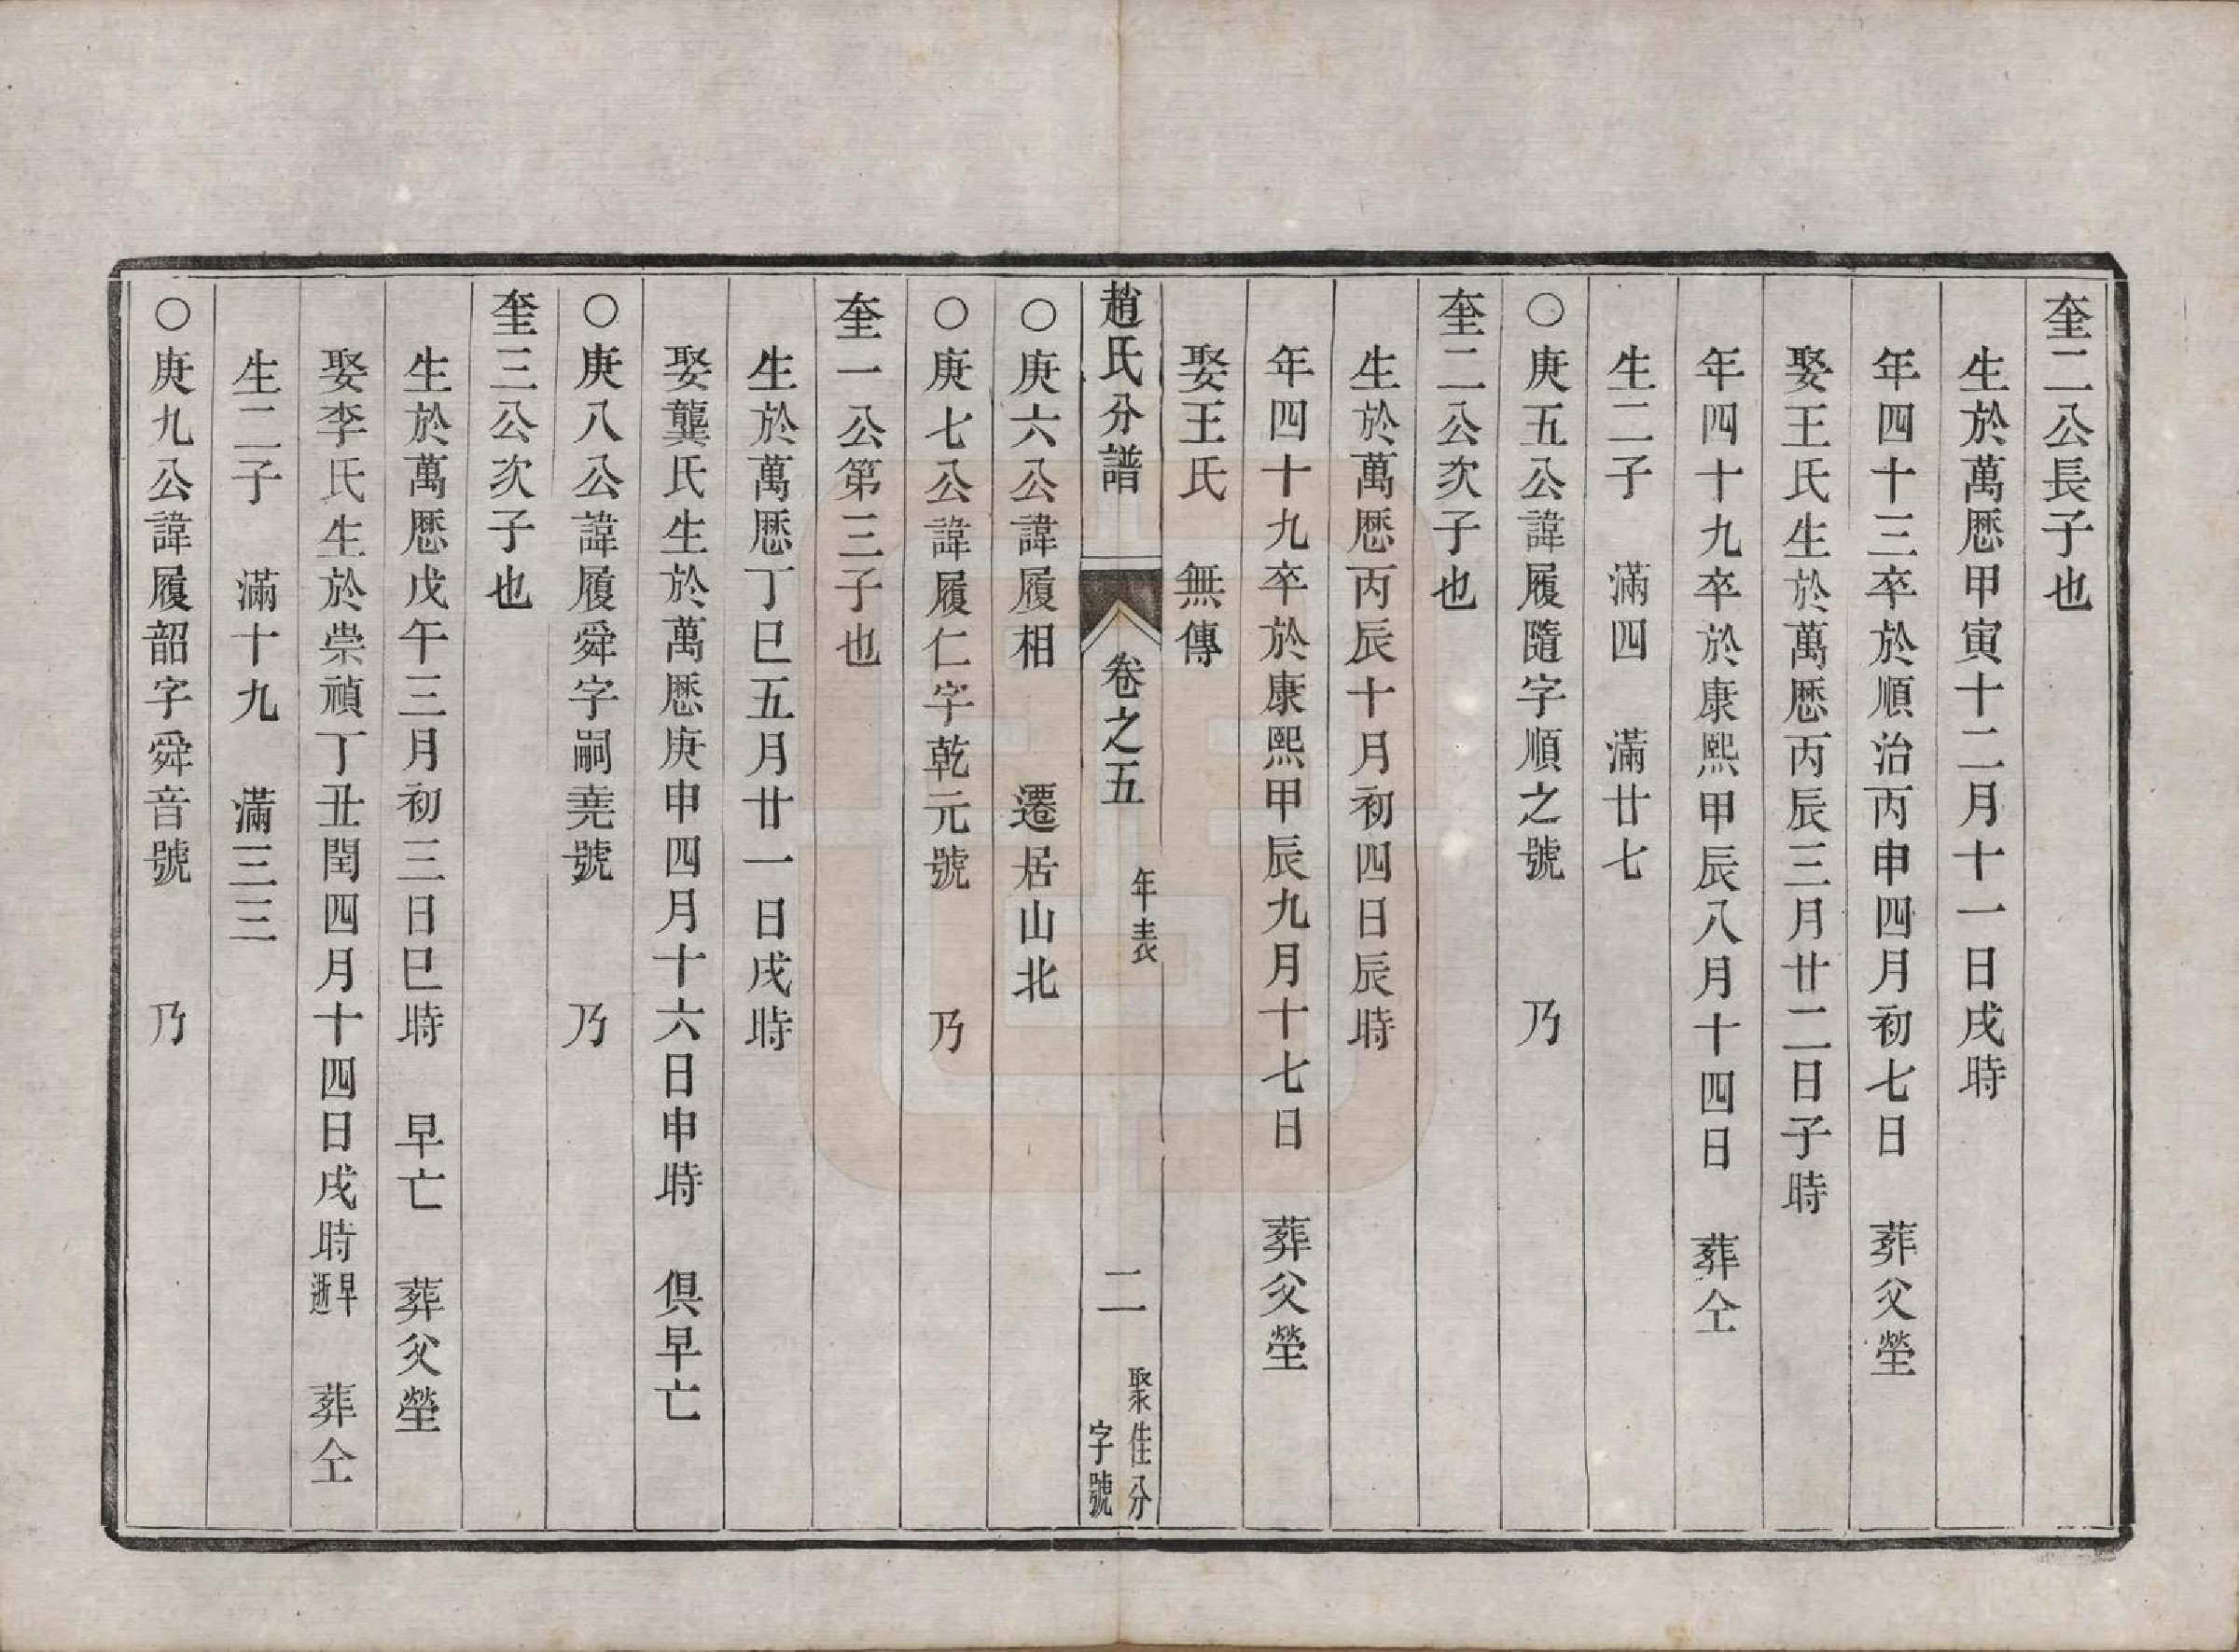 奎二公長子也
生於萬厯甲寅十二月十一日戌時
年四十三卒於順治丙申四月初七日　葬父塋
娶王氏生於萬厯丙辰三月廿二日子時
年四十九卒於康熙甲辰八月十四日　葬仝
生二子　滿四　滿廿七
○庚五公諱履隨字順之號　　乃
奎二公次子也
生於萬厯丙辰十月初四日辰時
年四十九卒於康熙甲辰九月十七日　葬父塋
娶王氏　無傳
趙氏分譜　卷之五　年表　二　聚佳分字號
○庚六公諱履相　　遷居山北
○庚七公諱履仁字乾元號　　乃
奎一公第三子也
生於萬厯丁巳五月廿一日戌時
娶龔氏生於萬厯庚申四月十六日申時　俱早亡
○庚八公諱履舜字嗣堯號　　乃
奎三公次子也
生於萬厯戊午三月初三日巳時　早亡　葬父塋
娶李氏生於崇禎丁丑閏四月十四日戌時早逝　葬仝
生二子　滿十九　滿三三
○庚九公諱履韶字舜音號　　乃